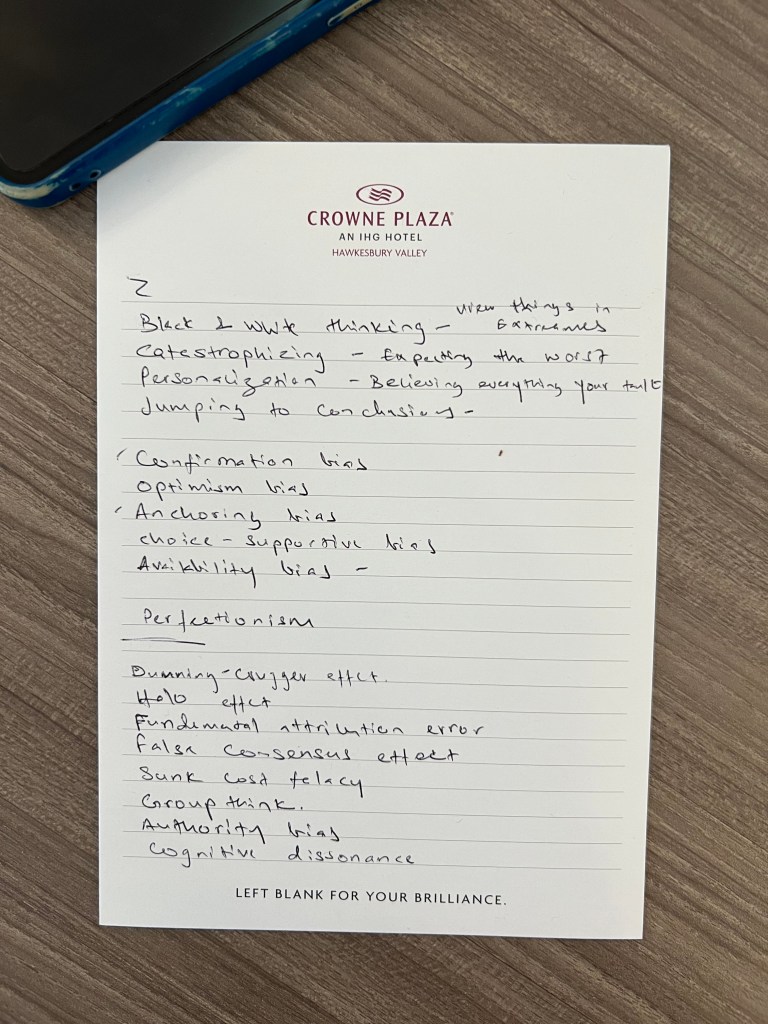 CROWNE PLAZA
AN IHG HOTEL
HAWKESBURY VALLEY
2
view things in
Black & White thinking - Extreames
Catestrophizing - Expecting the worst
Personalization - Believing everything your fault
Jumping to conclusions -
Confirmation bias
Optimism bias
Anchoring bias
choice - supportive bias
Availability bias -
Perfectionism
Dunning-Cruger effect.
Halo effect
Fundematal attribution error
False consensus effect
Sunk cost felacy
Group think.
Authority bias
Cognitive dissonance
LEFT BLANK FOR YOUR BRILLIANCE.